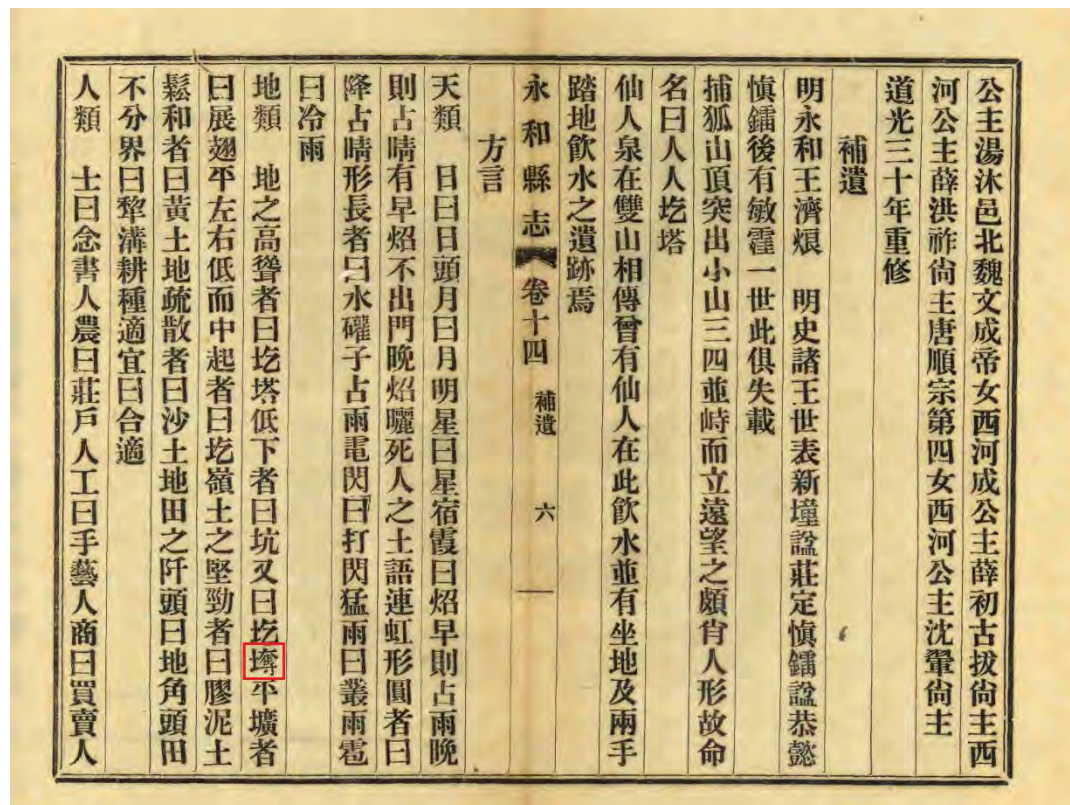 公主湯沐邑北魏文成帝女西河成公主薛初古拔尙主西
河公主薛洪祚尙主唐順宗第四女西河公主沈翬尙主
道光三十年重修
補遺
明永和王濟烺　明史諸王世表新墥諡莊定愼鐳諡恭懿
愼鐳後有敏一世此俱失載
捕狐山頂突出小山三四並峙而立遠望之頗肖人形故命
名曰人人圪塔
仙人泉在雙山相傳曾有仙人在此飲水並有坐地及兩手
踏地飲水之遺跡焉
永和縣志　卷十四　補遺　六
方言
天類　日曰日頭月曰月明星曰星宿霞曰炤早則占雨晚
則占晴有早炤不出門晚炤曬死人之土語連虹形圓者曰
降占晴形長者曰水礶子占雨電閃曰打閃猛雨曰叢雨雹
曰冷雨
地類　地之高聳者曰圪塔低下者曰坑又曰圪平壙者
曰展翅平左右低而中起者曰圪嶺土之堅勁者曰膠泥土
鬆和者曰黃土地疏散者曰沙土地田之阡頭曰地角頭田
不分界曰犂溝耕種適宜曰合適
人類　士曰念書人農曰莊戶人工曰手藝人商曰買賣人